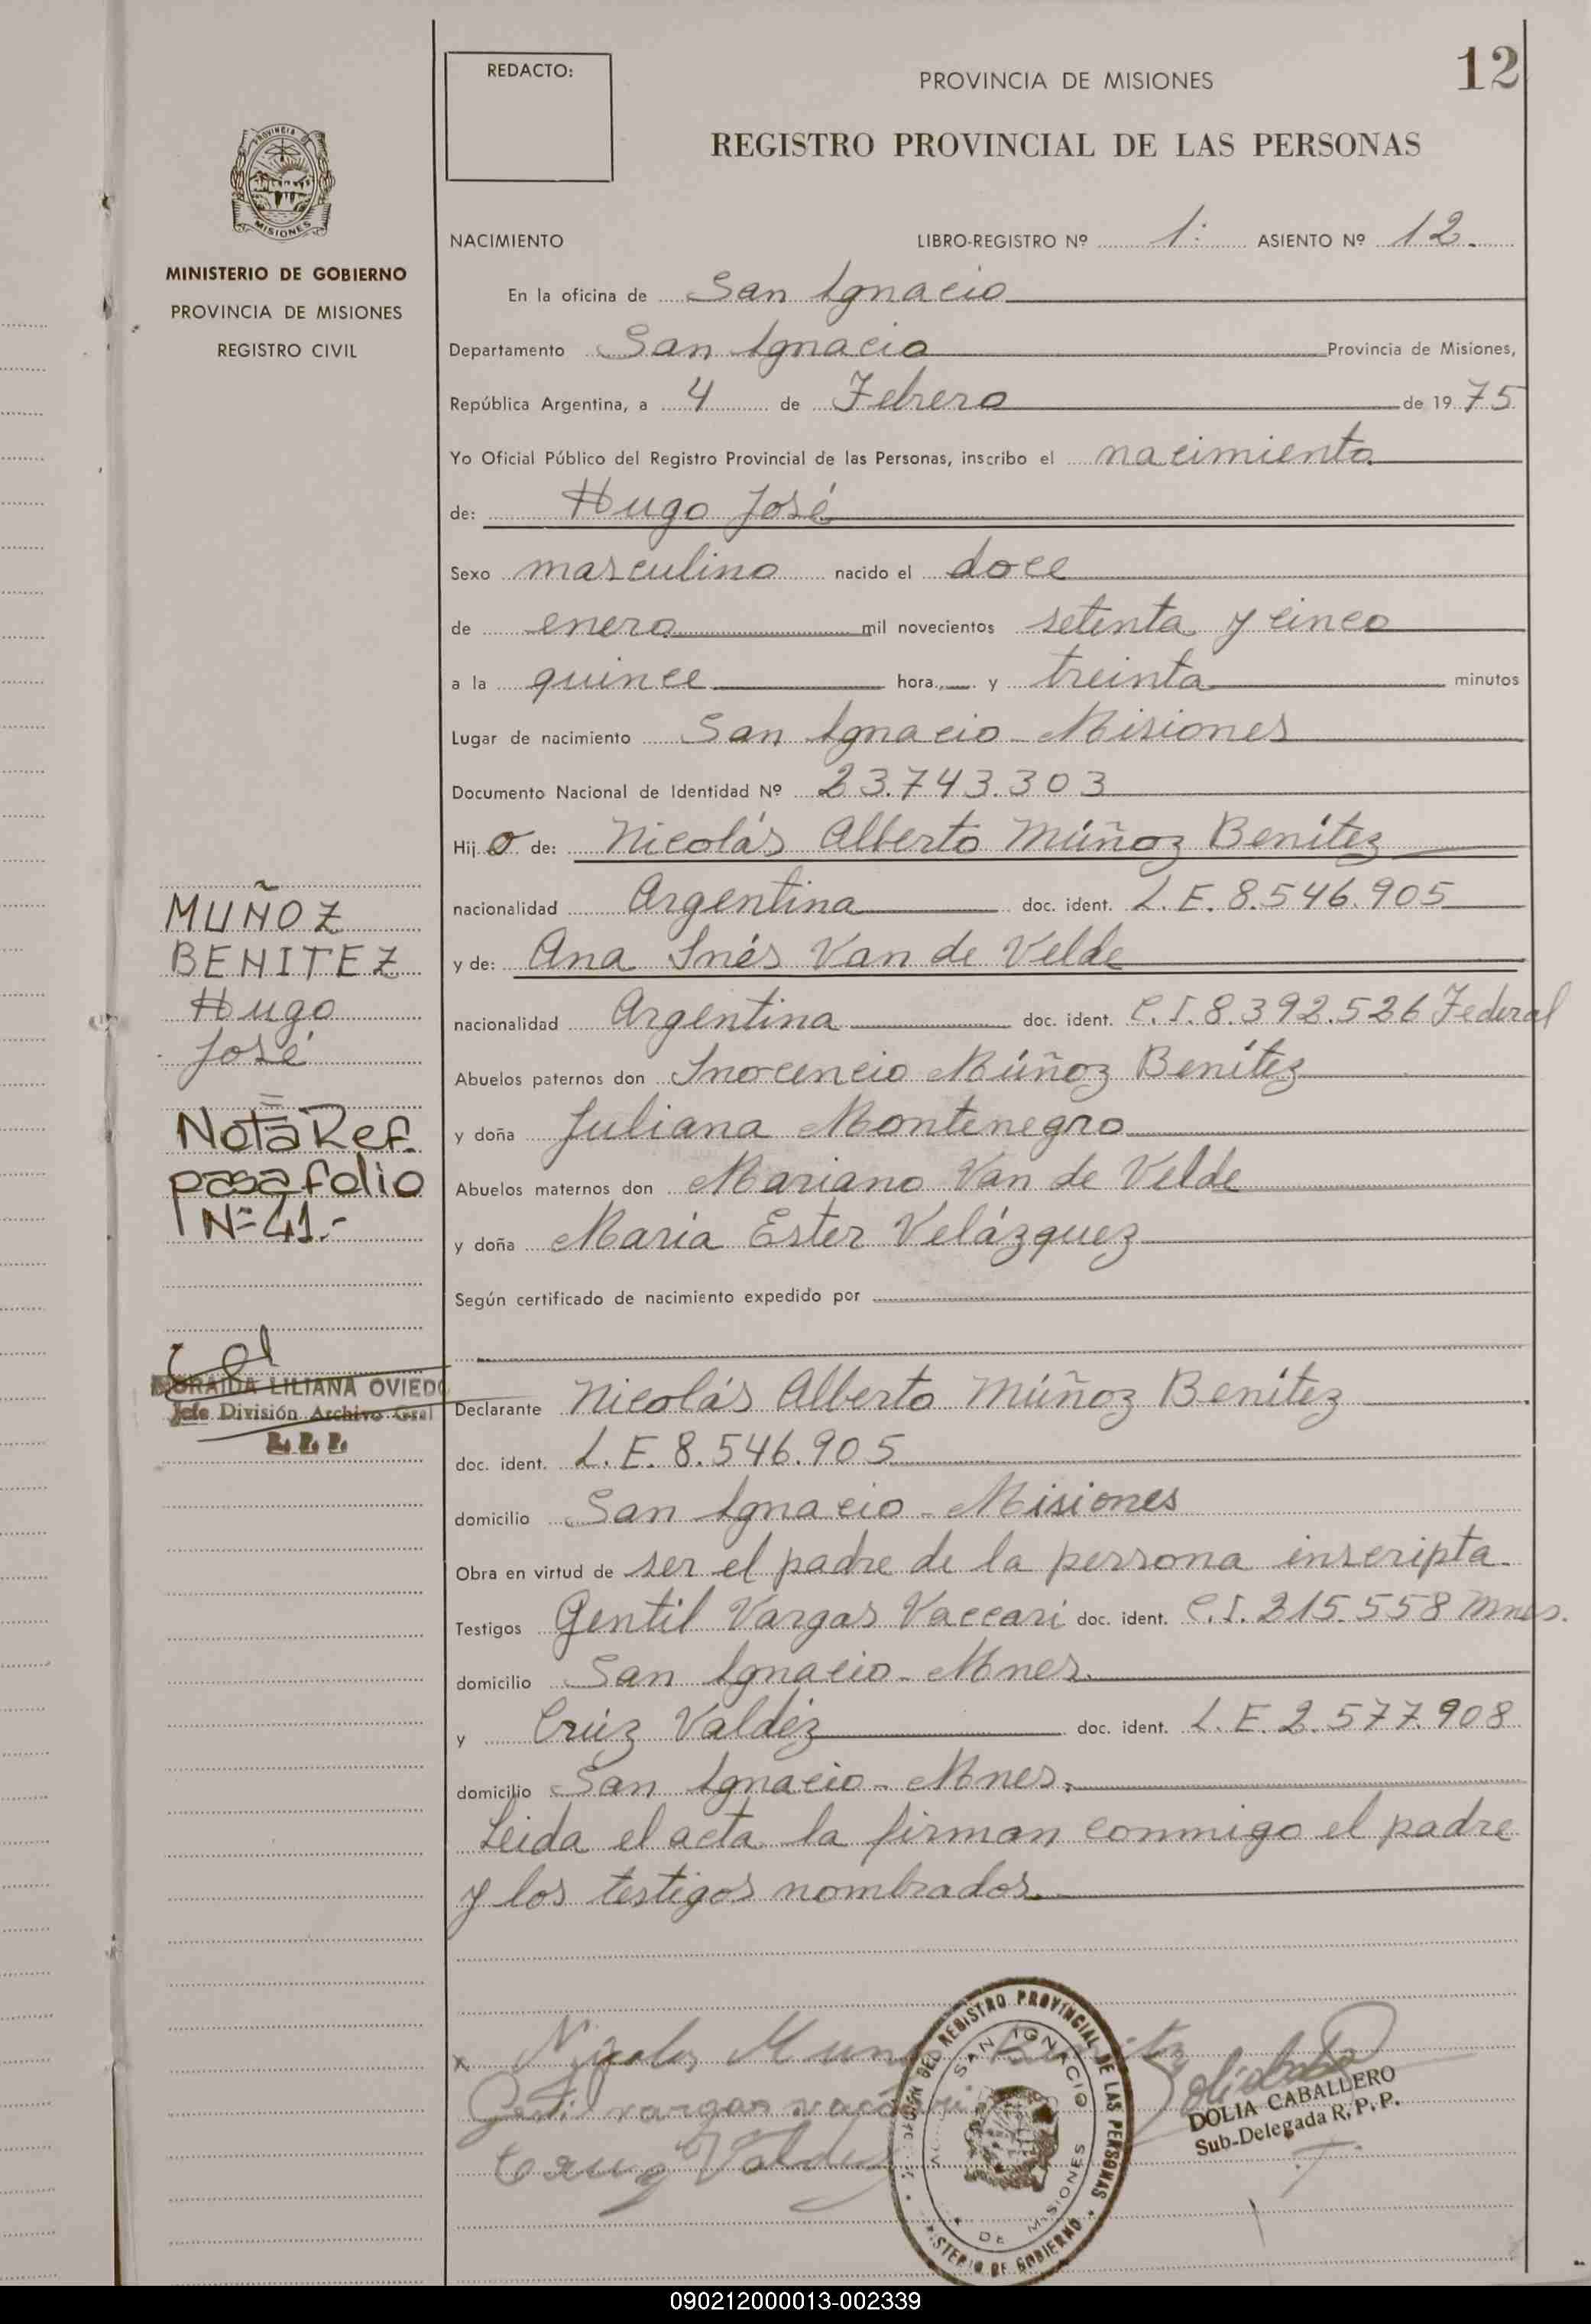 REDACTO:
PROVINCIA DE MISIONES
12
REGISTRO PROVINCIAL DE LAS PERSONAS
PROVINCIA DE
MISIONES
MINISTERIO DE GOBIERNO
PROVINCIA DE MISIONES
REGISTRO CIVIL
NACIMIENTO LIBRO-REGISTRO Nº 1: ASIENTO Nº 12.
En la oficina de San Ignacio
Departamento San Ignacio Provincia de Misiones,
República Argentina, a 4 de Febrero de 1975
Yo Oficial Público del Registro Provincial de las Personas, inscribo el nacimiento
de: Hugo José
Sexo masculino nacido el doce
de enero mil novecientos setenta y cinco
a la quince hora y treinta minutos
Lugar de nacimiento San Ignacio - Misiones
Documento Nacional de Identidad Nº 23.743.303
Hijo de: Nicolás Alberto Múñoz Benítez
nacionalidad Argentina doc. ident. L.E. 8.546.905
y de: Ana Inés Van de Velde
nacionalidad Argentina doc. ident. C.I. 8.392.526 Federal
Abuelos paternos don Inocencio Múñoz Benítez
y doña Juliana Montenegro
Abuelos maternos don Mariano Van de Velde
y doña María Ester Velázquez
Según certificado de nacimiento expedido por
Declarante Nicolás Alberto Múñoz Benítez
doc. ident. L.E. 8.546.905
domicilio San Ignacio - Misiones
Obra en virtud de ser el padre de la persona inscripta
Testigos Gentil Vargas Vaccari doc. ident. C.I. 215.558 Mnes.
domicilio San Ignacio - Mnes.
y Crúz Valdéz doc. ident. L.E. 2.577.908
domicilio San Ignacio - Mnes.
Leida el acta la firman conmigo el padre
y los testigos nombrados.
MUÑOZ
BENITEZ
Hugo
José
Nota Ref.
pasa folio
Nº 41.-
ZORAIDA LILIANA OVIEDO
Jefe División Archivo Gral
R. P. P.
x Nicolas Munoz Benitez
Gentil vargas vaccari
Cruz Valdez
REGISTRO PROVINCIAL DE LAS PERSONAS
SAN IGNACIO
DE MISIONES
MINISTERIO DE GOBIERNO
DOLIA CABALLERO
Sub-Delegada R. P. P.
090212000013-002339